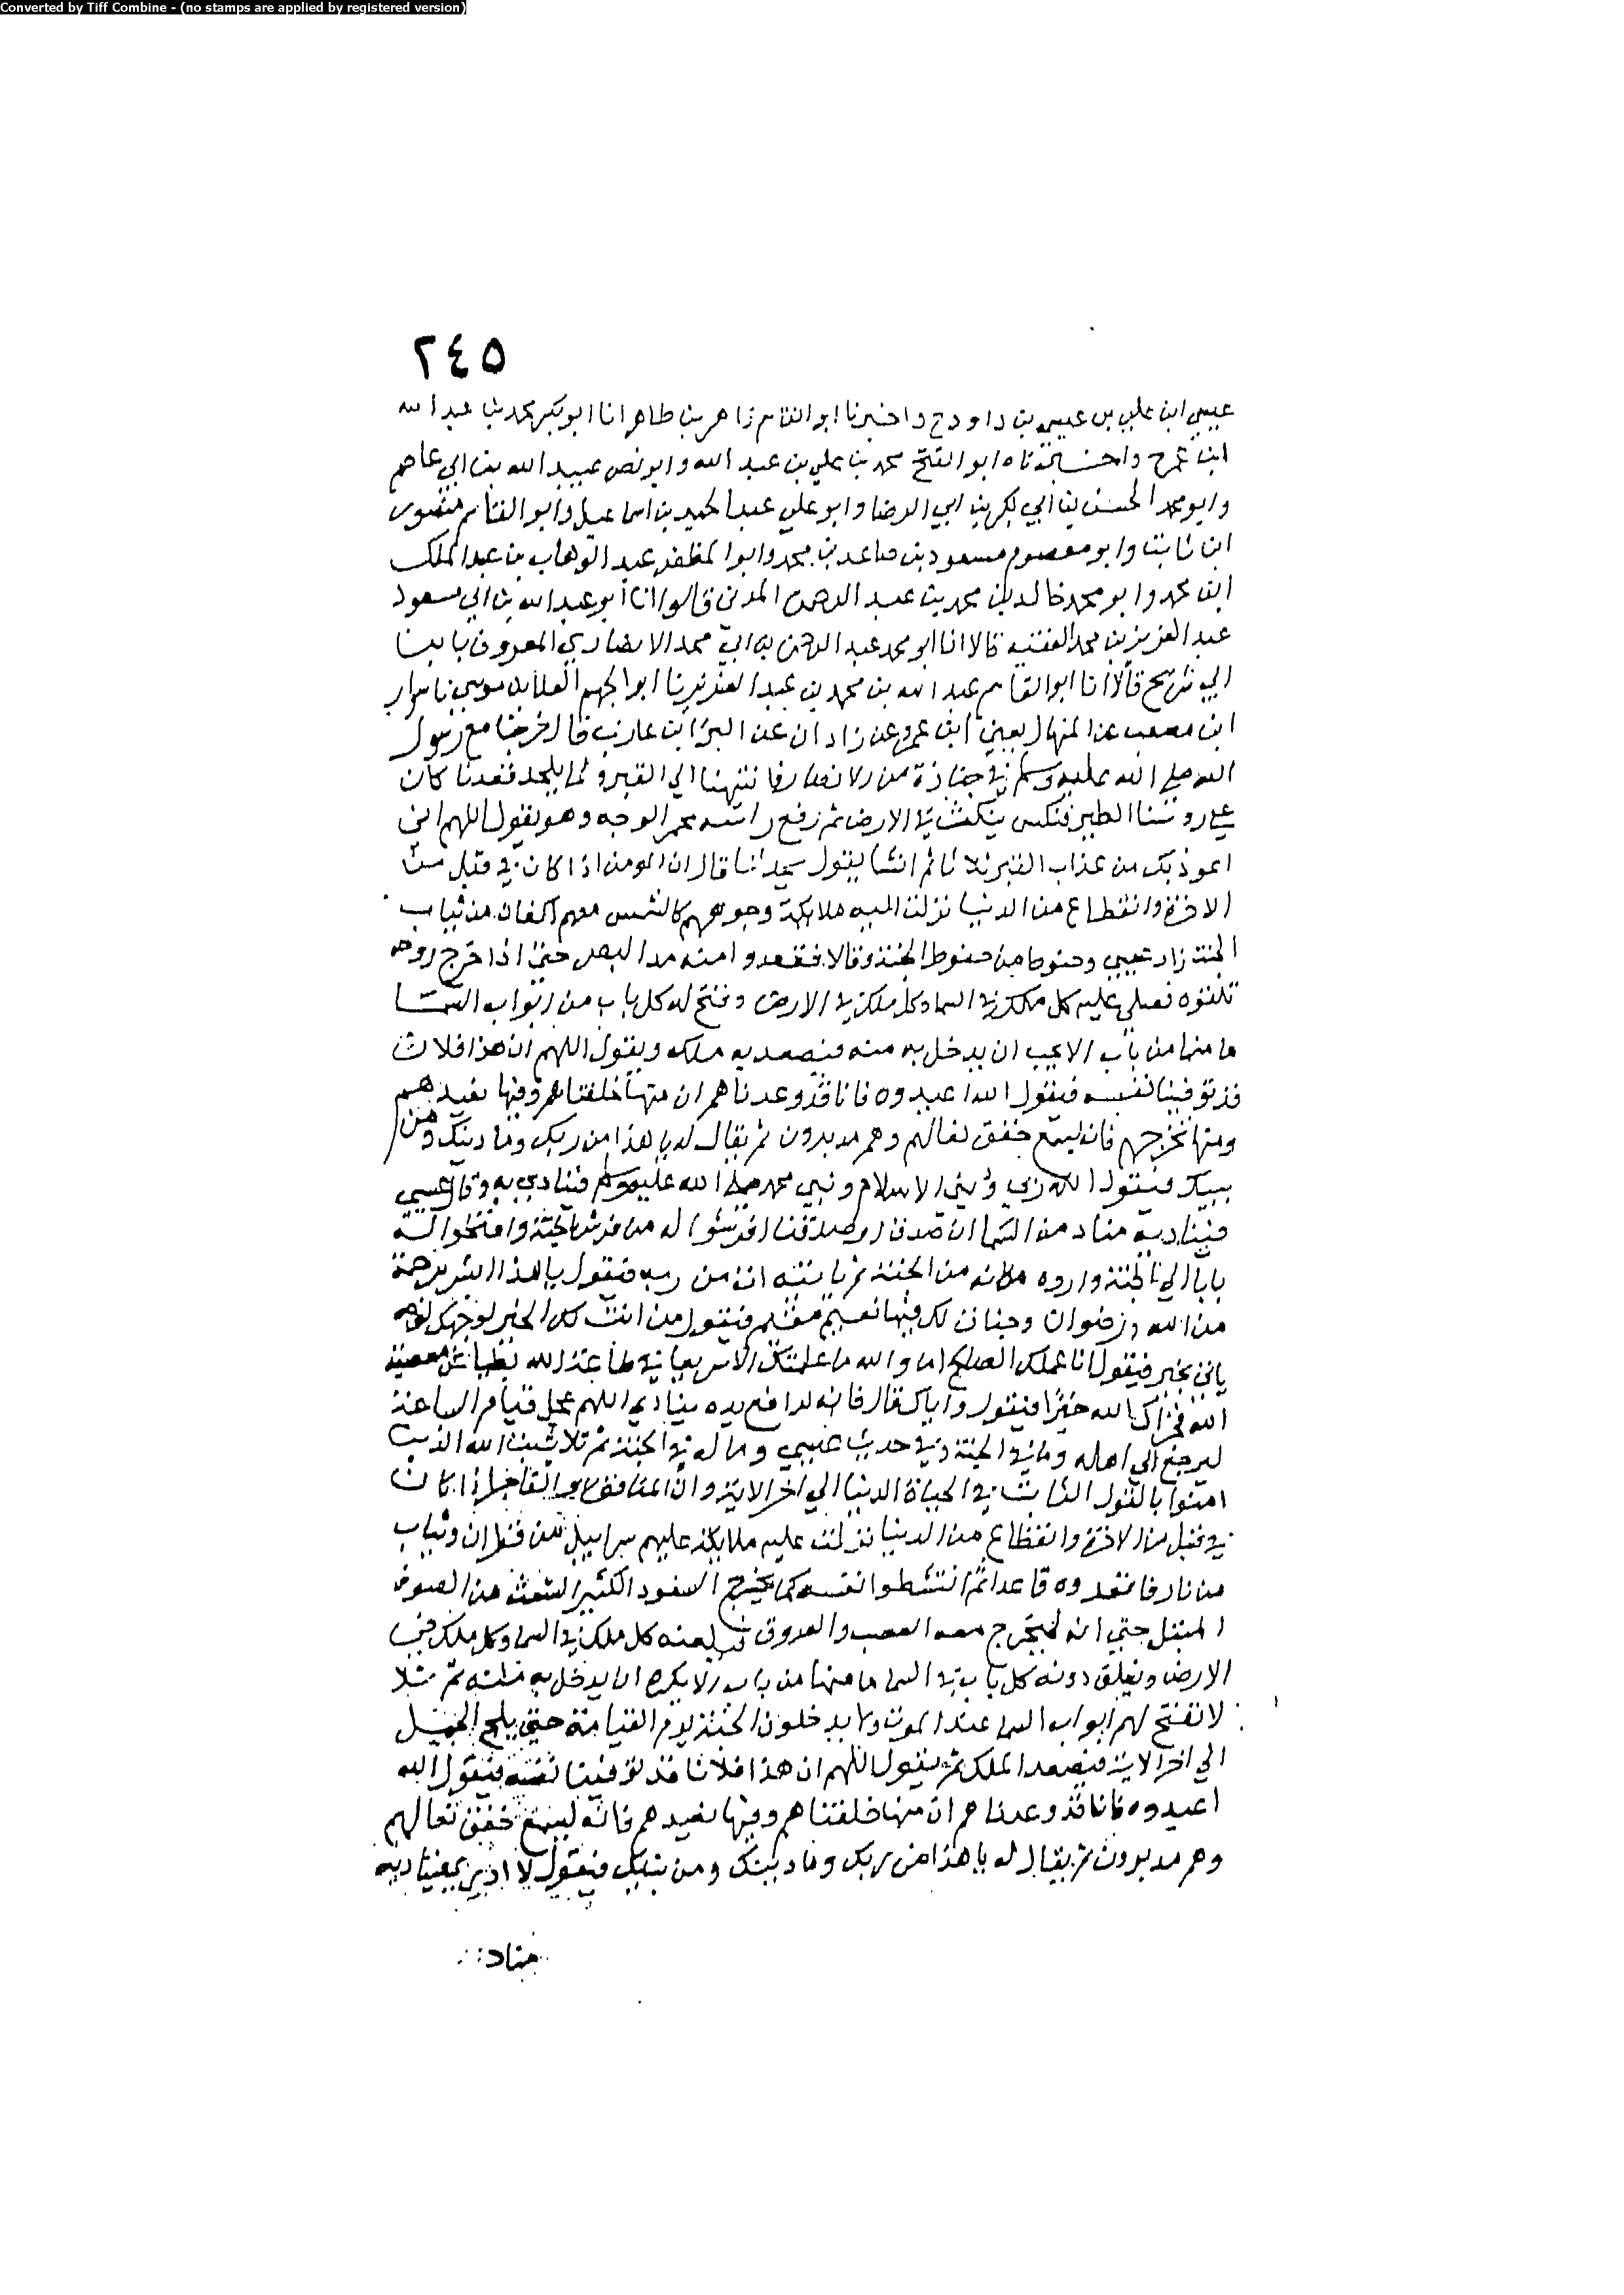 Converted by Tiff Combine - (no stamps are applied by registered version)
٢٤٥
عيسي ابن علي بن عيسي بن داود ح واخبرنا ابو القاسم زاهر بن طاهر انا ابو بكر محمد بن عبد الله
ابن عمرح واخبرناه ابو الفتح محمد بن علي بن عبد الله وابو نصر عبيد الله بن ابي عاصم
وابو محمد الحسن بن ابي بكر بن ابي الرضا وابو علي عبد الحميد بن اسماعيل وابو القاسم منصور
ابن ثابت وابو معصوم مسعود بن صاعد بن محمد وابو المظفر عبد الوهاب بن عبد الملك
ابن محمد وابو محمد خالد بن محمد بن عبد الرحمن المدني قالوا انا ابو عبد الله بن ابي مسعود
عبد العزيز بن محمد الفقيه قالا انا ابو محمد عبد الرحمن بن ابي محمد الانصاري المعروف بابن
ابي شريح قالا انا ابو القاسم عبد الله بن محمد بن عبد العزيز نا ابو الجهم العلا بن موسي نا سوار
ابن مصعب عن المنهال يعني ابن عمرو عن زاذان عن البرا بن عازب قال خرجنا مع رسول
الله صلي الله عليه وسلم في جنازة من الانصار فانتهينا الي القبر ولما يلحد فقعدنا كان
علي روسنا الطير فنكس ينكت في الارض ثم رفع راسه محمر الوجه وهو يقول اللهم اني
اعوذ بك من عذاب القبر ثلاثا ثم انشا يقول يحدثنا قال ان المومن اذا كان في قبل من
الاخرة وانقطاع من الدنيا نزلت اليه ملايكة وجوههم كالشمس معهم اكفان من ثياب
الجنة زاد عيسي وحنوطا من حنوط الجنة وقالا فقعدوا منه مد البصر حتي اذا خرج روحه
تلقوه فصلي عليه كل ملك في السما وكل ملك في الارض وفتح له كل باب من ابواب السما
ما منها من باب الا يحب ان يدخل به منه فيصعد به ملكه ويقول اللهم ان هذا فلان
قد توفينا نفسه فيقول الله اعيدوه فانا قد وعدناهم ان منها خلقناهم وفيها نعيدهم
ومنها نخرجهم فانه ليسمع خفق نعالهم وهم مدبرون ثم يقال له يا هذا من ربك وما دينك ومن
نبيك فيقول الله ربي وديني الاسلام ونبي محمد صلي الله عليه وسلم فينادي به وقال عيسي
فيناديه مناد من السما ان صدق افرشوا له من فرش الجنة وافتحوا له
بابا الي الجنة واروه مكانه من الجنة ثم ياتيه ات من ربه فيقول يا هذا ابشر برحمة
من الله ورضوان وجنات لك فيها نعيم مقيم فيقول من انت لوجهك
ياتي بخير فيقول انا عملك الصالح اما والله ما علمتك الا سريعا في طاعة الله بطيا عن معصية
الله فجزاك الله خيرا فيقول واياك قال فانه لرافع يده ينادي اللهم عجل قيام الساعة
ليرجع الي اهله وما في الجنة وفي حديث عيسي وما له في الجنة ثم تلا يثبت الله الذين
امنوا بالقول الثابت في الحياة الدنيا الي اخر الاية وان المنافق او الفاجر اذا كان
في قبل من الاخرة وانقطاع من الدنيا نزلت عليه ملايكة عليهم سرابيل من قطران وثياب
من نار فاقعدوه قاعدا ثم انتشطوا نفسه كما يخرج السفود الكثير الشعث من الصوف
المبتل حتي انه ليخرج معه العصب والعروق فيلعنه كل ملك في السما وكل ملك في
الارض ويغلق دونه كل باب في السما ما منها من باب الا يكره ان يدخل به منه ثم تلا
لا تفتح لهم ابواب السما عند الموت ولا يدخلون الجنة يوم القيامة حتي يلج الجمل
الي اخر الاية فيصعد الملك ثم يقول اللهم ان هذا فلانا قد توفينا نفسه فيقول الله
اعيدوه فانا قد وعدناهم ان منها خلقناهم وفيها نعيدهم فانه ليسمع خفق نعالهم
وهم مدبرون ثم يقال له يا هذا من ربك وما دينك ومن نبيك فيقول لا ادري فيناديه
مناد